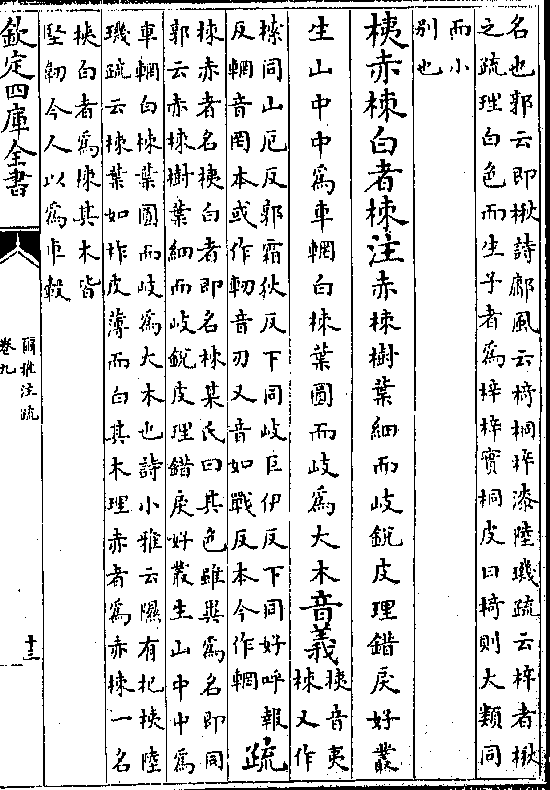 名也郭云即楸詩鄘風云椅桐梓漆陸璣疏云梓者楸
之疏理白色而生子者為梓梓實桐皮曰椅則大類同
而小
别也
桋赤棟白者棟注赤棟樹葉細而岐銳皮理錯戾好叢
生山中中為車輞白棟葉圓而岐為大木音義桋音夷
棟又作
㮶同山厄反郭霜狄反下同岐巨伊反下同好呼報
反輞音罔本或作軔音刃又音如戰反本今作輞疏
棟赤者名桋白者即名棟某氏曰其色雖異為名即同
郭云赤棟樹葉細而岐銳皮理錯戾好叢生山中中為
車輞白棟葉圓而岐為大木也詩小雅云隰有杞桋陸
璣疏云棟葉如柞皮薄而白其木理赤者為赤棟一名
桋白者為棟其木皆
堅韌今人以為車轂
欽定四庫全書
爾雅注疏
卷九
十三